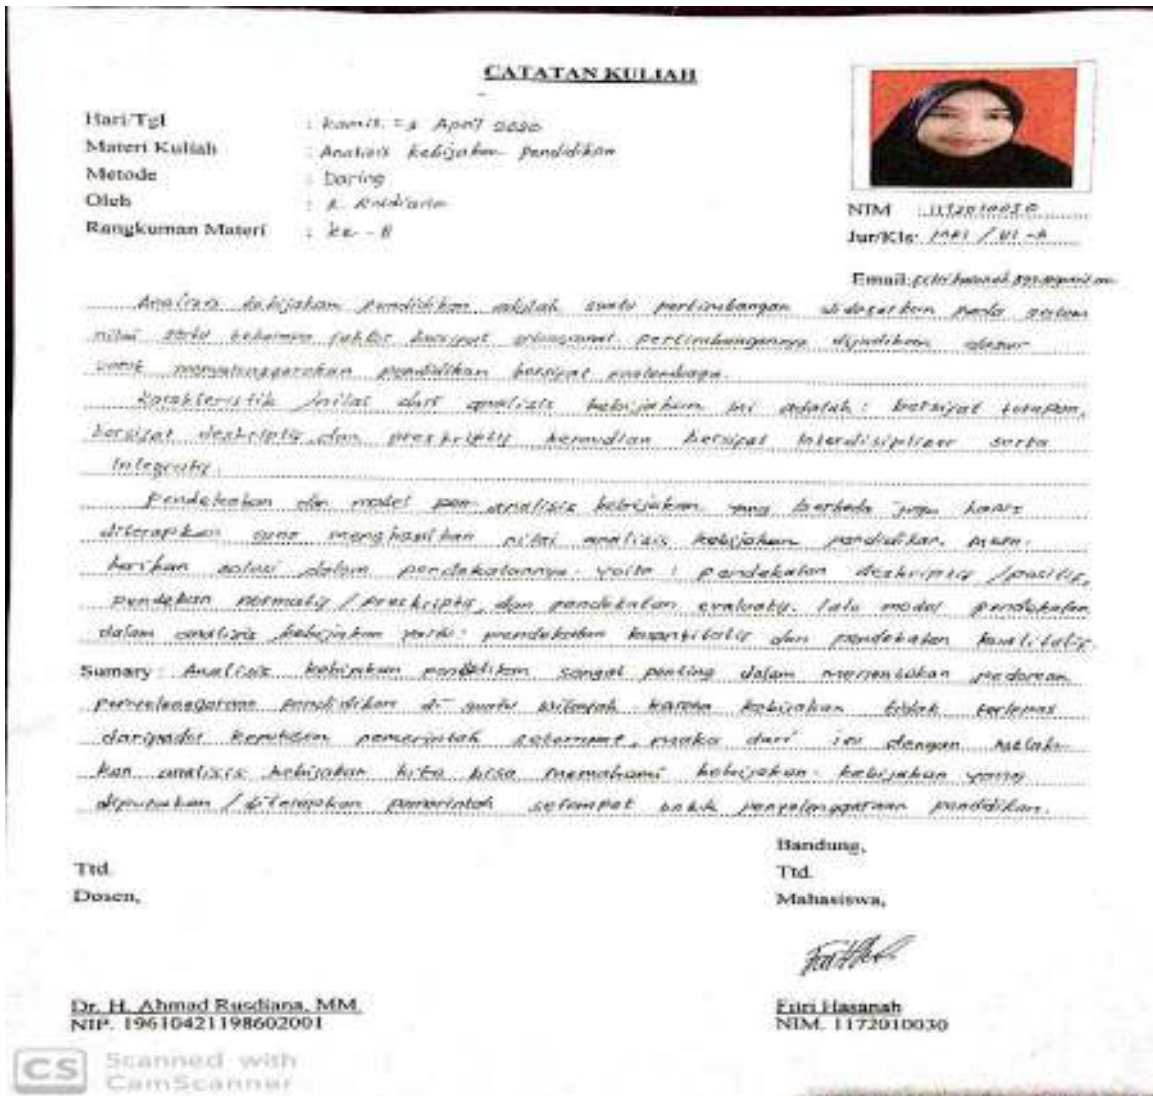 CATATAN KULIAH
Hari/Tgl : Kamis, April 2020
Materi Kuliah : Analisis kebijakan pendidikan
Metode : Daring
Oleh : A. Rusdiana
Rangkuman Materi : ke - 8
NIM : 1172010030
Jur/Kls: MPI / VI - A
Email:
Analisis kebijakan pendidikan adalah suatu pertimbangan didasarkan pada sistem
nilai beberapa faktor bersipat pertimbangannya dijadikan dasar
untuk menyelenggarakan pendidikan bersipat melembaga.
Karakteristik /nilai dari analisis kebijakan ini adalah : bersifat terapan,
bersifat deskriptif dan preskriptif kemudian bersipat interdisipliner serta
integratif.
Pendekatan dan model analisis kebijakan yang berbeda juga harus
diterapkan guna menghasilkan nilai analisis kebijakan pendidikan. Mem-
berikan solusi dalam pendekatannya yaitu : pendekatan deskriptif /positif,
pendekan normatif / preskriptif, dan pendekatan evaluatif. lalu model pendekatan
dalam analisis kebijakan yaitu : pendekatan kuantitatif dan pendekatan kualitatif.
Sumary : Analisis kebijakan pendidikan sangat penting dalam menentukan pedoman
penyelenggaraan pendidikan di suatu wilayah karena kebijakan tidak terlepas
daripada keputusan pemerintah setempat, maka dari itu dengan melaku-
kan analisis kebijakan kita bisa memahami kebijakan - kebijakan yang
diputuskan / diterapkan pemerintah setempat untuk penyelenggaraan pendidikan.
Bandung,
Ttd.
Dosen,
Ttd.
Mahasiswa,
Dr. H. Ahmad Rusdiana, MM.
NIP. 19610421198602001
Fitri Hasanah
NIM. 1172010030
CS Scanned with
CamScanner